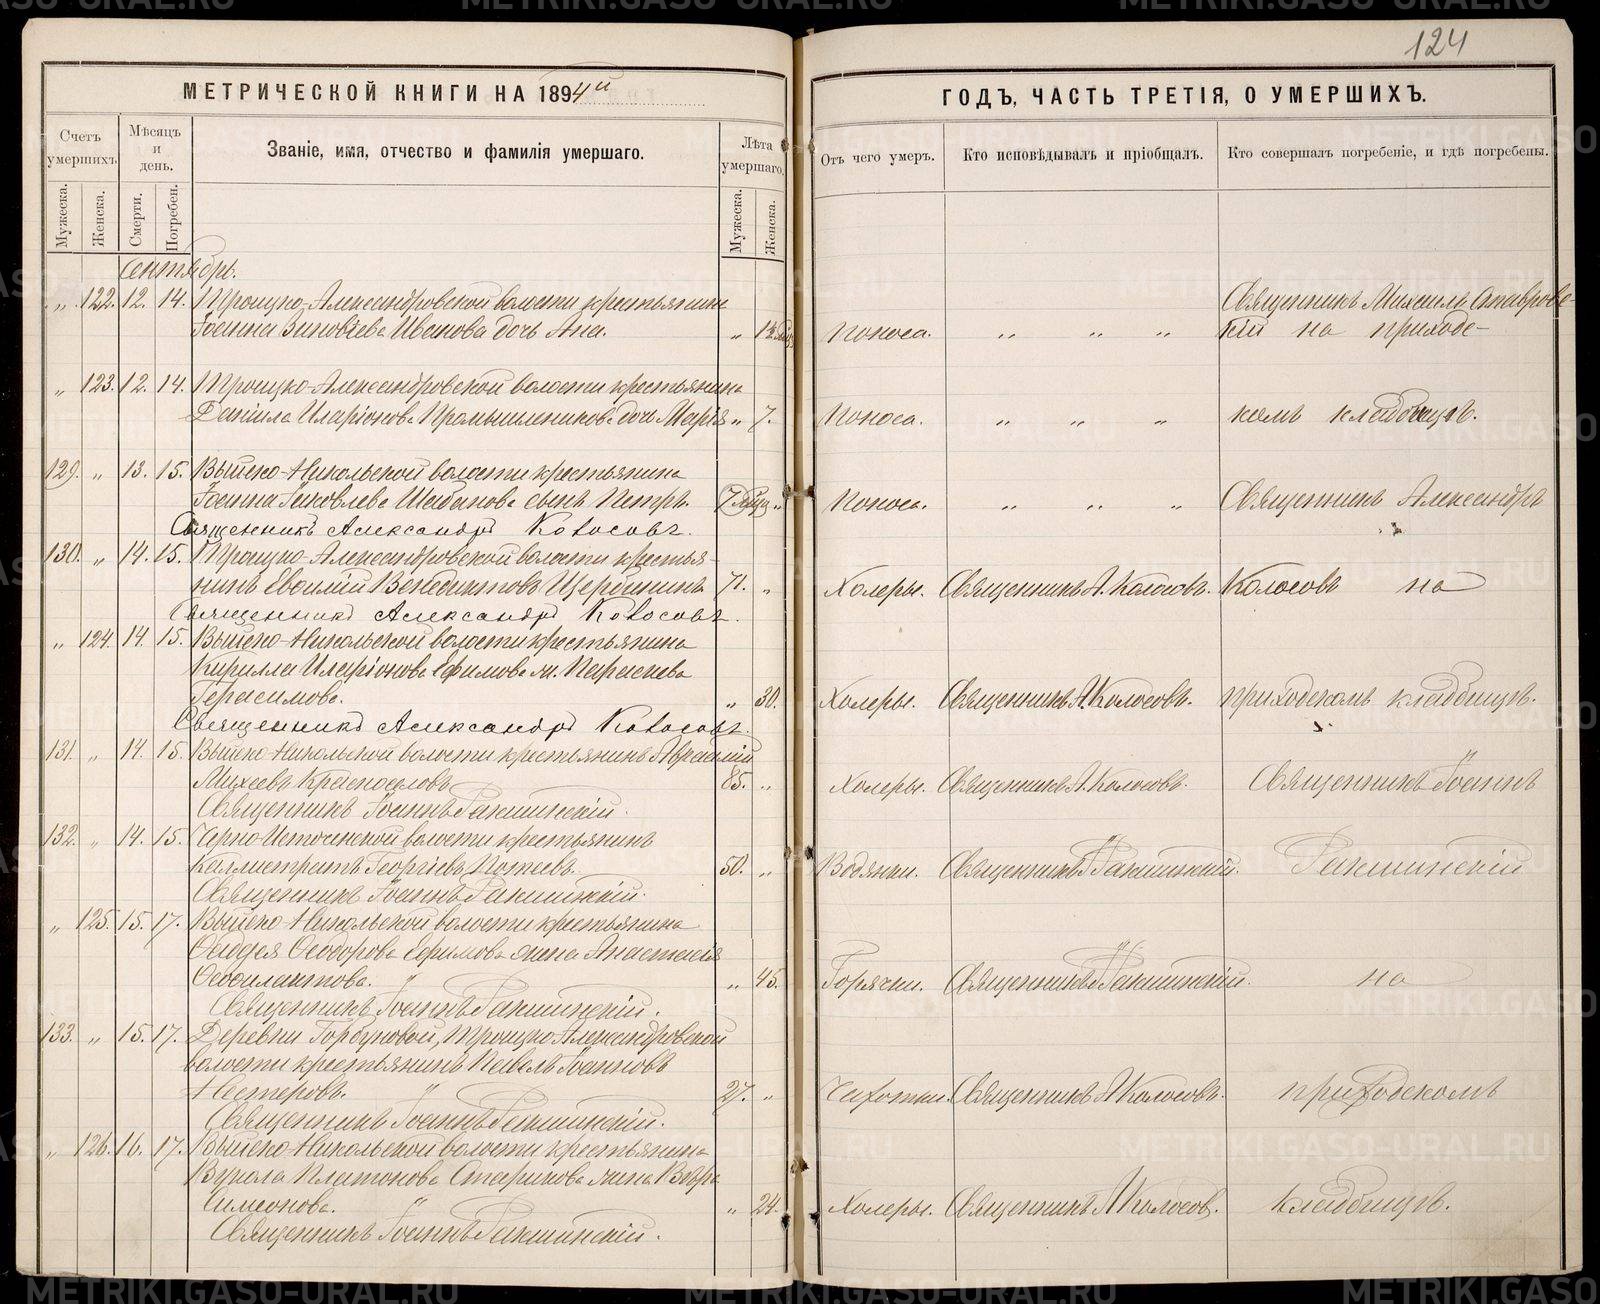 124
МЕТРИЧЕСКОЙ КНИГИ НА 1894й
ГОДЪ, ЧАСТЬ ТРЕТІЯ, О УМЕРШИХЪ.
Счетъ умершихъ.
Мѣсяцъ и день.
Званіе, имя, отчество и фамилія умершаго.
Лѣта умершаго.
Отъ чего умеръ.
Кто исповѣдывалъ и пріобщалъ.
Кто совершалъ погребеніе, и гдѣ погребены.
Мужеска.
Женска.
Смерти.
Погребен.
Мужеска.
Женска.
Сентябрь.
„ 122. 12. 14. Троицко-Александровской волости крестьянина Священникъ Михаилъ Ставровс-
Іоанна Зиновіева Иванова дочь Анна. „ Поноса. „ „ „ кій на приходс-
„ 123. 12. 14. Троицко-Александровской волости крестьянина
Даніила Иларіонова Промышленникова дочь Марія „ 7. Поноса. „ „ „ комъ кладбищѣ.
129. „ 13. 15. Выйско-Никольской волости крестьянина
Іоанна Яковлева Шабанова сынъ Петръ. „ Поноса. „ „ „ Священникъ Александръ
Священникъ Александръ Колосовъ.
130. „ 14. 15. Троицко-Александровской волости крестья-
нинъ Евсимій Венедиктовъ Щербининъ 71. „ Холеры. Священникъ А. Колосовъ. Колосовъ на
Священникъ Александръ Колосовъ.
„ 124. 14. 15. Выйско-Никольской волости крестьянина
Кирилла Иларіонова Ефимова ж. Параскева
Герасимова. „ 30. Холеры. Священникъ А. Колосовъ. приходскомъ кладбищѣ.
Священникъ Александръ Колосовъ.
131. „ 14. 15. Выйско-Никольской волости крестьянинъ Авраамій
Михеевъ Красноселовъ 85. „ Холеры. Священникъ А. Колосовъ. Священникъ Іоаннъ
Священникъ Іоаннъ Ракшинскій.
132. „ 14. 15. Черно-Источинской волости крестьянинъ
Каллистратъ Георгіевъ Потѣевъ. 50. „ Водянки. Священникъ І. Ракшинскій. Ракшинскій
Священникъ Іоаннъ Ракшинскій.
„ 125. 15. 17. Выйско-Никольской волости крестьянина
Ѳаддея Ѳеодорова Ефимова жена Анастасія
Ѳеофилактова. „ 45. Горячки. Священникъ І. Ракшинскій. на
Священникъ Іоаннъ Ракшинскій.
133. „ 15. 17. Деревни Горбуновой, Троицко Александровской
волости крестьянинъ Павелъ Іоанновъ
Нестеровъ. 27. „ Чахотки. Священникъ А. Колосовъ. приходскомъ
Священникъ Іоаннъ Ракшинскій.
„ 126. 16. 17. Выйско-Никольской волости крестьянина
Вукола Платонова Старикова жена Вѣра
Симеонова. „ 24. Холеры. Священникъ А. Колосовъ. кладбищѣ.
Священникъ Іоаннъ Ракшинскій.
METRIKI.GASO-URAL.RU